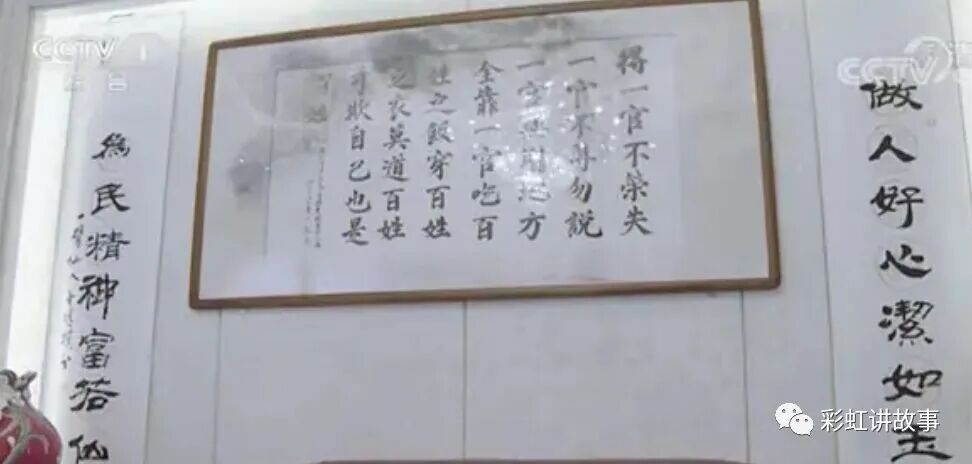 CCTV 1
CCTV
做人好心潔如玉
得一官不榮失
一官不辱勿說
一官無用地方
全靠一官吃百
姓之飯穿百姓
之衣莫道百姓
可欺自己也是
百姓
爲民精神富若仙
彩虹讲故事